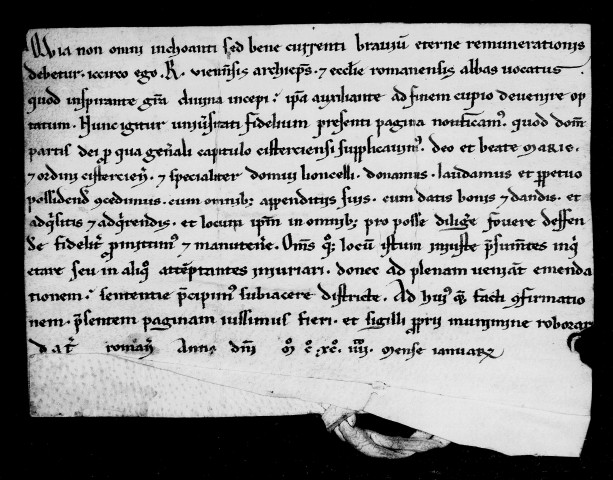 Quia non omni inchoanti sed bene currenti braviū eterne remunerationis
debetur. iccirco ego. R. vienn̄sis archiep̄s. ⁊ ecclīe romanensis abbas vocatus
quod inspirante gr̄a divina incepi. ip̄a auxiliante ad finem cupio devenire op
tatum. Hunc igitur univ̄sitati fidelium presenti pagina notificam̄. quod dom̄
partis dei ꝓ qua gen̄ali capitulo cisterciensi supplicavim̄. deo et beate MARIE.
⁊ ordini cistercien̄. ⁊ specialiter domui lioncelli. donam̄s. laudamus et ꝑpetuo
possidend̄ ꝯcedimus. cum omnibꝫ appenditiis suis. cum datis bonis ⁊ dandis. et
adq̄sitis ⁊ adq̄rendis. et locum ip̄m in omnibꝫ pro posse diligēt̄ fovere deffen
de fidelit̄ ꝓmittim̄ ⁊ manuten̄e. Om̄s q̄ꝫ locū istum iniuste p̄sum̄tes inq̄
etare seu in aliq̄ attēptantes iniuriari. donec ad plenam veniāt emenda
tionem. sententie p̄cipim̄ subiacere districte. Ad hui᷒ q̄ꝫ facti ꝯfirmatio
nem. p̄sentem paginam iussimus fieri. et sigilli ꝓprii munimine roborari
dat̄ roman̄ Anno dn̄i Mͦ Cͦ. XCͦ. IIIIͦ. Mense ianuarꝫ